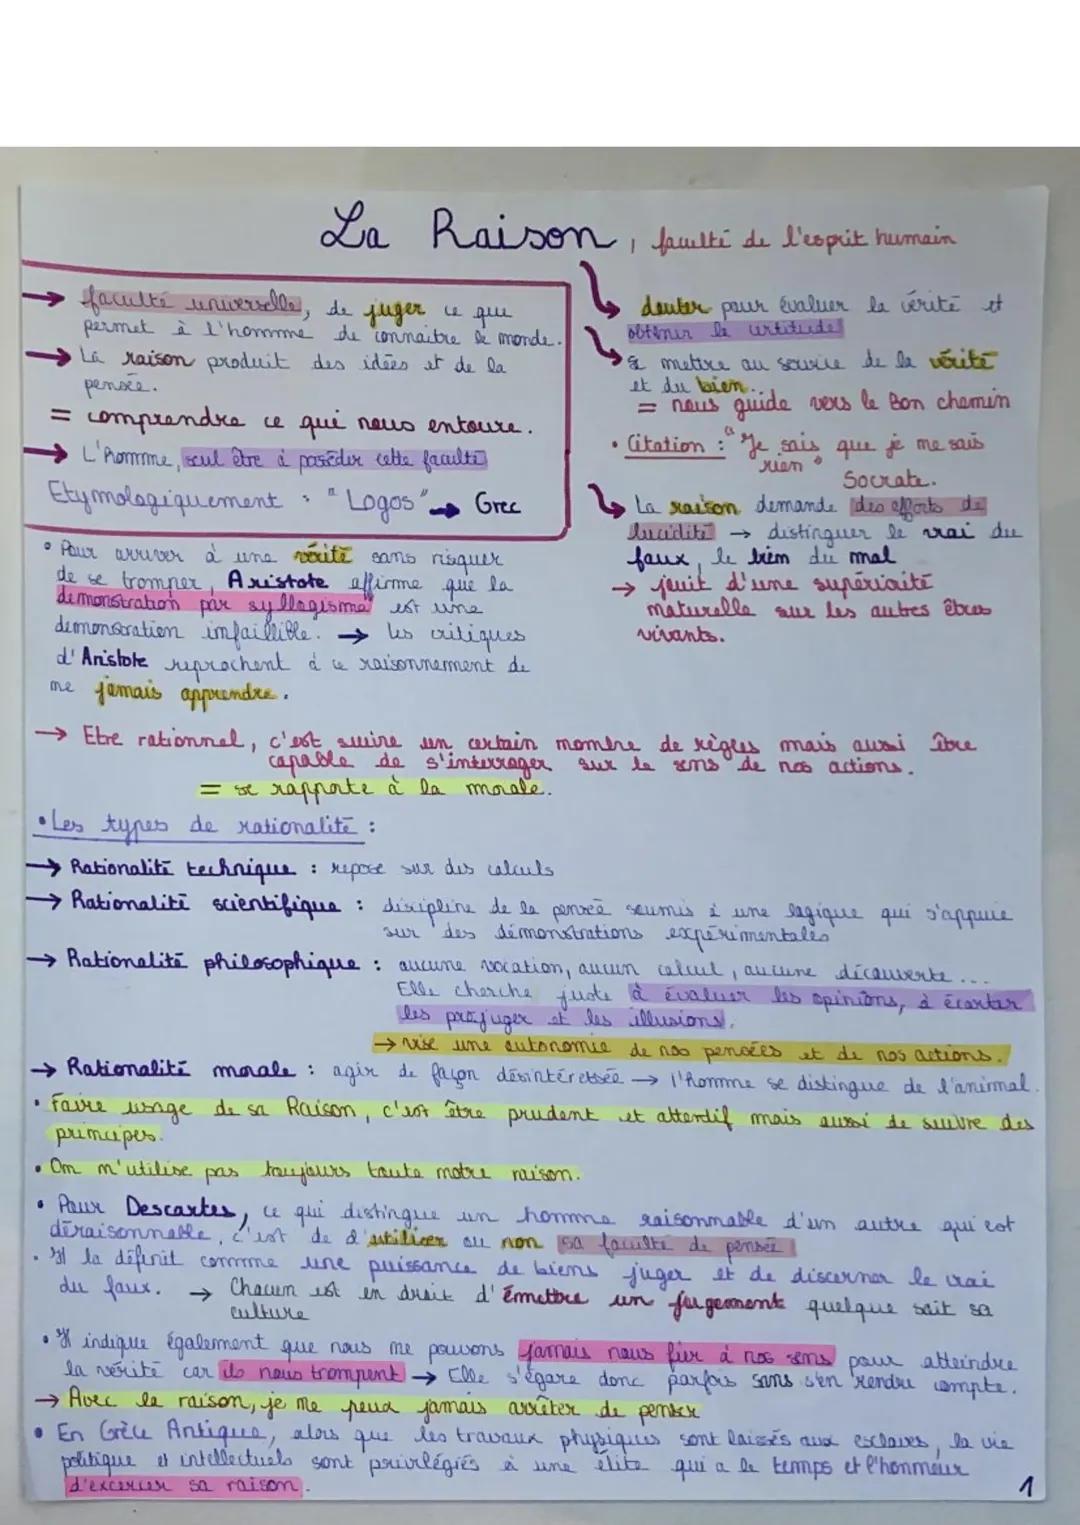 La Raison, faculté de l'esprit humain
→ faculté universelle, de juger ce qui
permet à l'homme de connaitre le monde.
→ La raison produit des idées et de la
pensée.
= comprendre ce qui nous entoure.
→ L'homme, seul être à posséder cette faculté
Etymologiquement : "Logos" → Grec
• Pour arriver à une vérité sans risquer
de se tromper, Aristote affirme que la
demonstration par syllogisme est une
demonstration infaillible. → les critiques
d'Aristote reprochent à ce raisonnement de
ne jamais apprendre.
douter pour évaluer la vérité et
obtenir la certitude
se mettre au service de la vérité
et du bien.
= nous guide vers le Bon chemin
• Citation : "Je sais que je ne sais
rien"
Socrate.
La raison demande des efforts de
lucidité → distinguer le vrai du
faux, le bien du mal
→ jouit d'une supériorité
naturelle sur les autres êtres
vivants.
→ Etre rationnel, c'est suivre un certain nombre de règles mais aussi être
capable de s'interroger sur le sens de nos actions.
= se rapporte à la morale.
• Les types de rationalité :
→ Rationalité technique : repose sur des calculs
→ Rationalité scientifique : discipline de la pensée soumis à une logique qui s'appuie
sur des démonstrations expérimentales
→ Rationalité philosophique : aucune vocation, aucun calcul, aucune découverte ...
Elle cherche juste à évaluer les opinions, à écarter
les préjuger et les illusions.
→ vise une autonomie de nos pensées et de nos actions.
→ Rationalité morale : agir de façon désintéressée → l'homme se distingue de l'animal.
• Faire usage de sa Raison, c'est être prudent et attentif mais aussi de suivre des
principes.
• On n'utilise pas toujours toute notre raison.
• Pour Descartes, ce qui distingue un homme raisonnable d'un autre qui est
déraisonnable, c'est de d'utiliser ou non sa faculté de pensée
• Il la définit comme une puissance de biens juger et de discerner le vrai
du faux. → Chacun est en droit d'émettre un jugement quelque soit sa
culture
• Il indique également que nous ne pouvons jamais nous fier à nos sens pour atteindre
la vérité car ils nous trompent → Elle s'égare donc parfois sans s'en rendre compte.
→ Avec la raison, je ne peux jamais arrêter de penser
• En Grèce Antique, alors que les travaux physiques sont laissés aux esclaves, la vie
politique et intellectuels sont privilégiés à une élite qui a le temps et l'honneur
d'excercer sa raison.
1